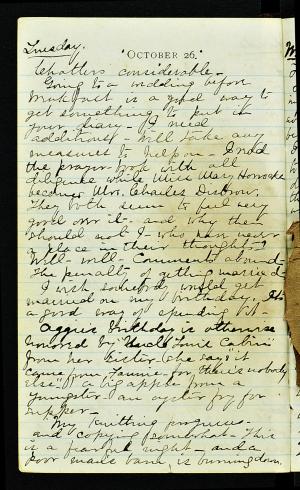 Tuesday.
"OCTOBER 26."
Chatters considerable -
Going to a wedding before
breakfast is a good way to
get something to put in
your diary - As need
additions will take any
measures to help on - I read
the prayer-book with all
diligence while Miss Mary
becomes Mrs. Charles
They both seem to feel very
good over it - and why then
should not I - who can never
place in their thoughts - ?
Will - well - Comments abound -
The penalty of getting married -
I wish somebody would get
married on my birthday, It's
a good way of spending it -
Aggie's birthday is otherwise
honored by "Uncle Tom's Cabin"
from her sister (she says it
came from Fannie - for there's nobody
else") a big apple from a
youngster - an oyster fry for
supper -
My knitting progresses -
and copying somewhat - This
is a fearful night - and a
poor man's barn is burning down,